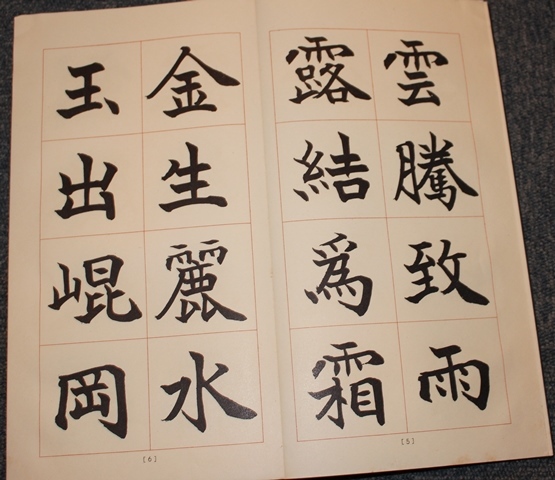 雲騰致雨
露結爲霜
[5]
金生麗水
玉出崐岡
[6]